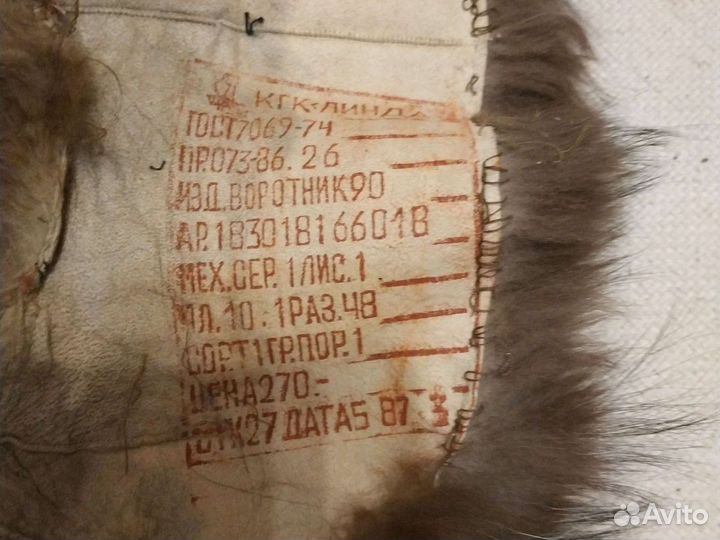 КГК-ЛИНДА
ГОСТ7069-74
ПР.073-86.26
ИЗД.ВОРОТНИК90
АР.18301816601В
МЕХ.СЕР.1ЛИС.1
ПЛ.10.1РАЗ.48
СОРТ1ГР.ПОР.1
ЦЕНА270.-
ОТК27 ДАТА5 87 3
Avito